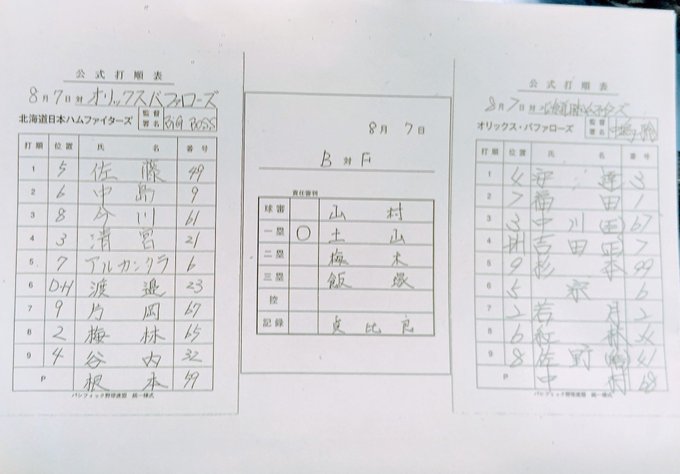 公式打順表
8月7日対 オリックスバファローズ
北海道日本ハムファイターズ 監督署名 BIG BOSS
打順 位置 氏名 番号
1 5 佐藤 49
2 6 中島 9
3 8 今川 61
4 3 清宮 21
5 7 アルカンタラ 6
6 DH 渡邉 23
7 9 片岡 67
8 2 梅林 65
9 4 谷内 32
P 根本 59
パシフィック野球連盟 統一様式
8月7日
B対F
責任審判
球審 山村
一塁 〇 土山
二塁 梅木
三塁 飯塚
控
記録 貞比良
公式打順表
8月7日対 北海道日本ハムファイターズ
オリックス・バファローズ 監督署名 中嶋 聡
打順 位置 氏名 番号
1 4 安達 3
2 7 福田 1
3 3 中川(圭) 67
4 DH 吉田(正) 7
5 9 杉本 99
6 5 宗 6
7 2 若月 2
8 6 紅林 24
9 8 佐野(皓) 41
P 中村 68
パシフィック野球連盟 統一様式